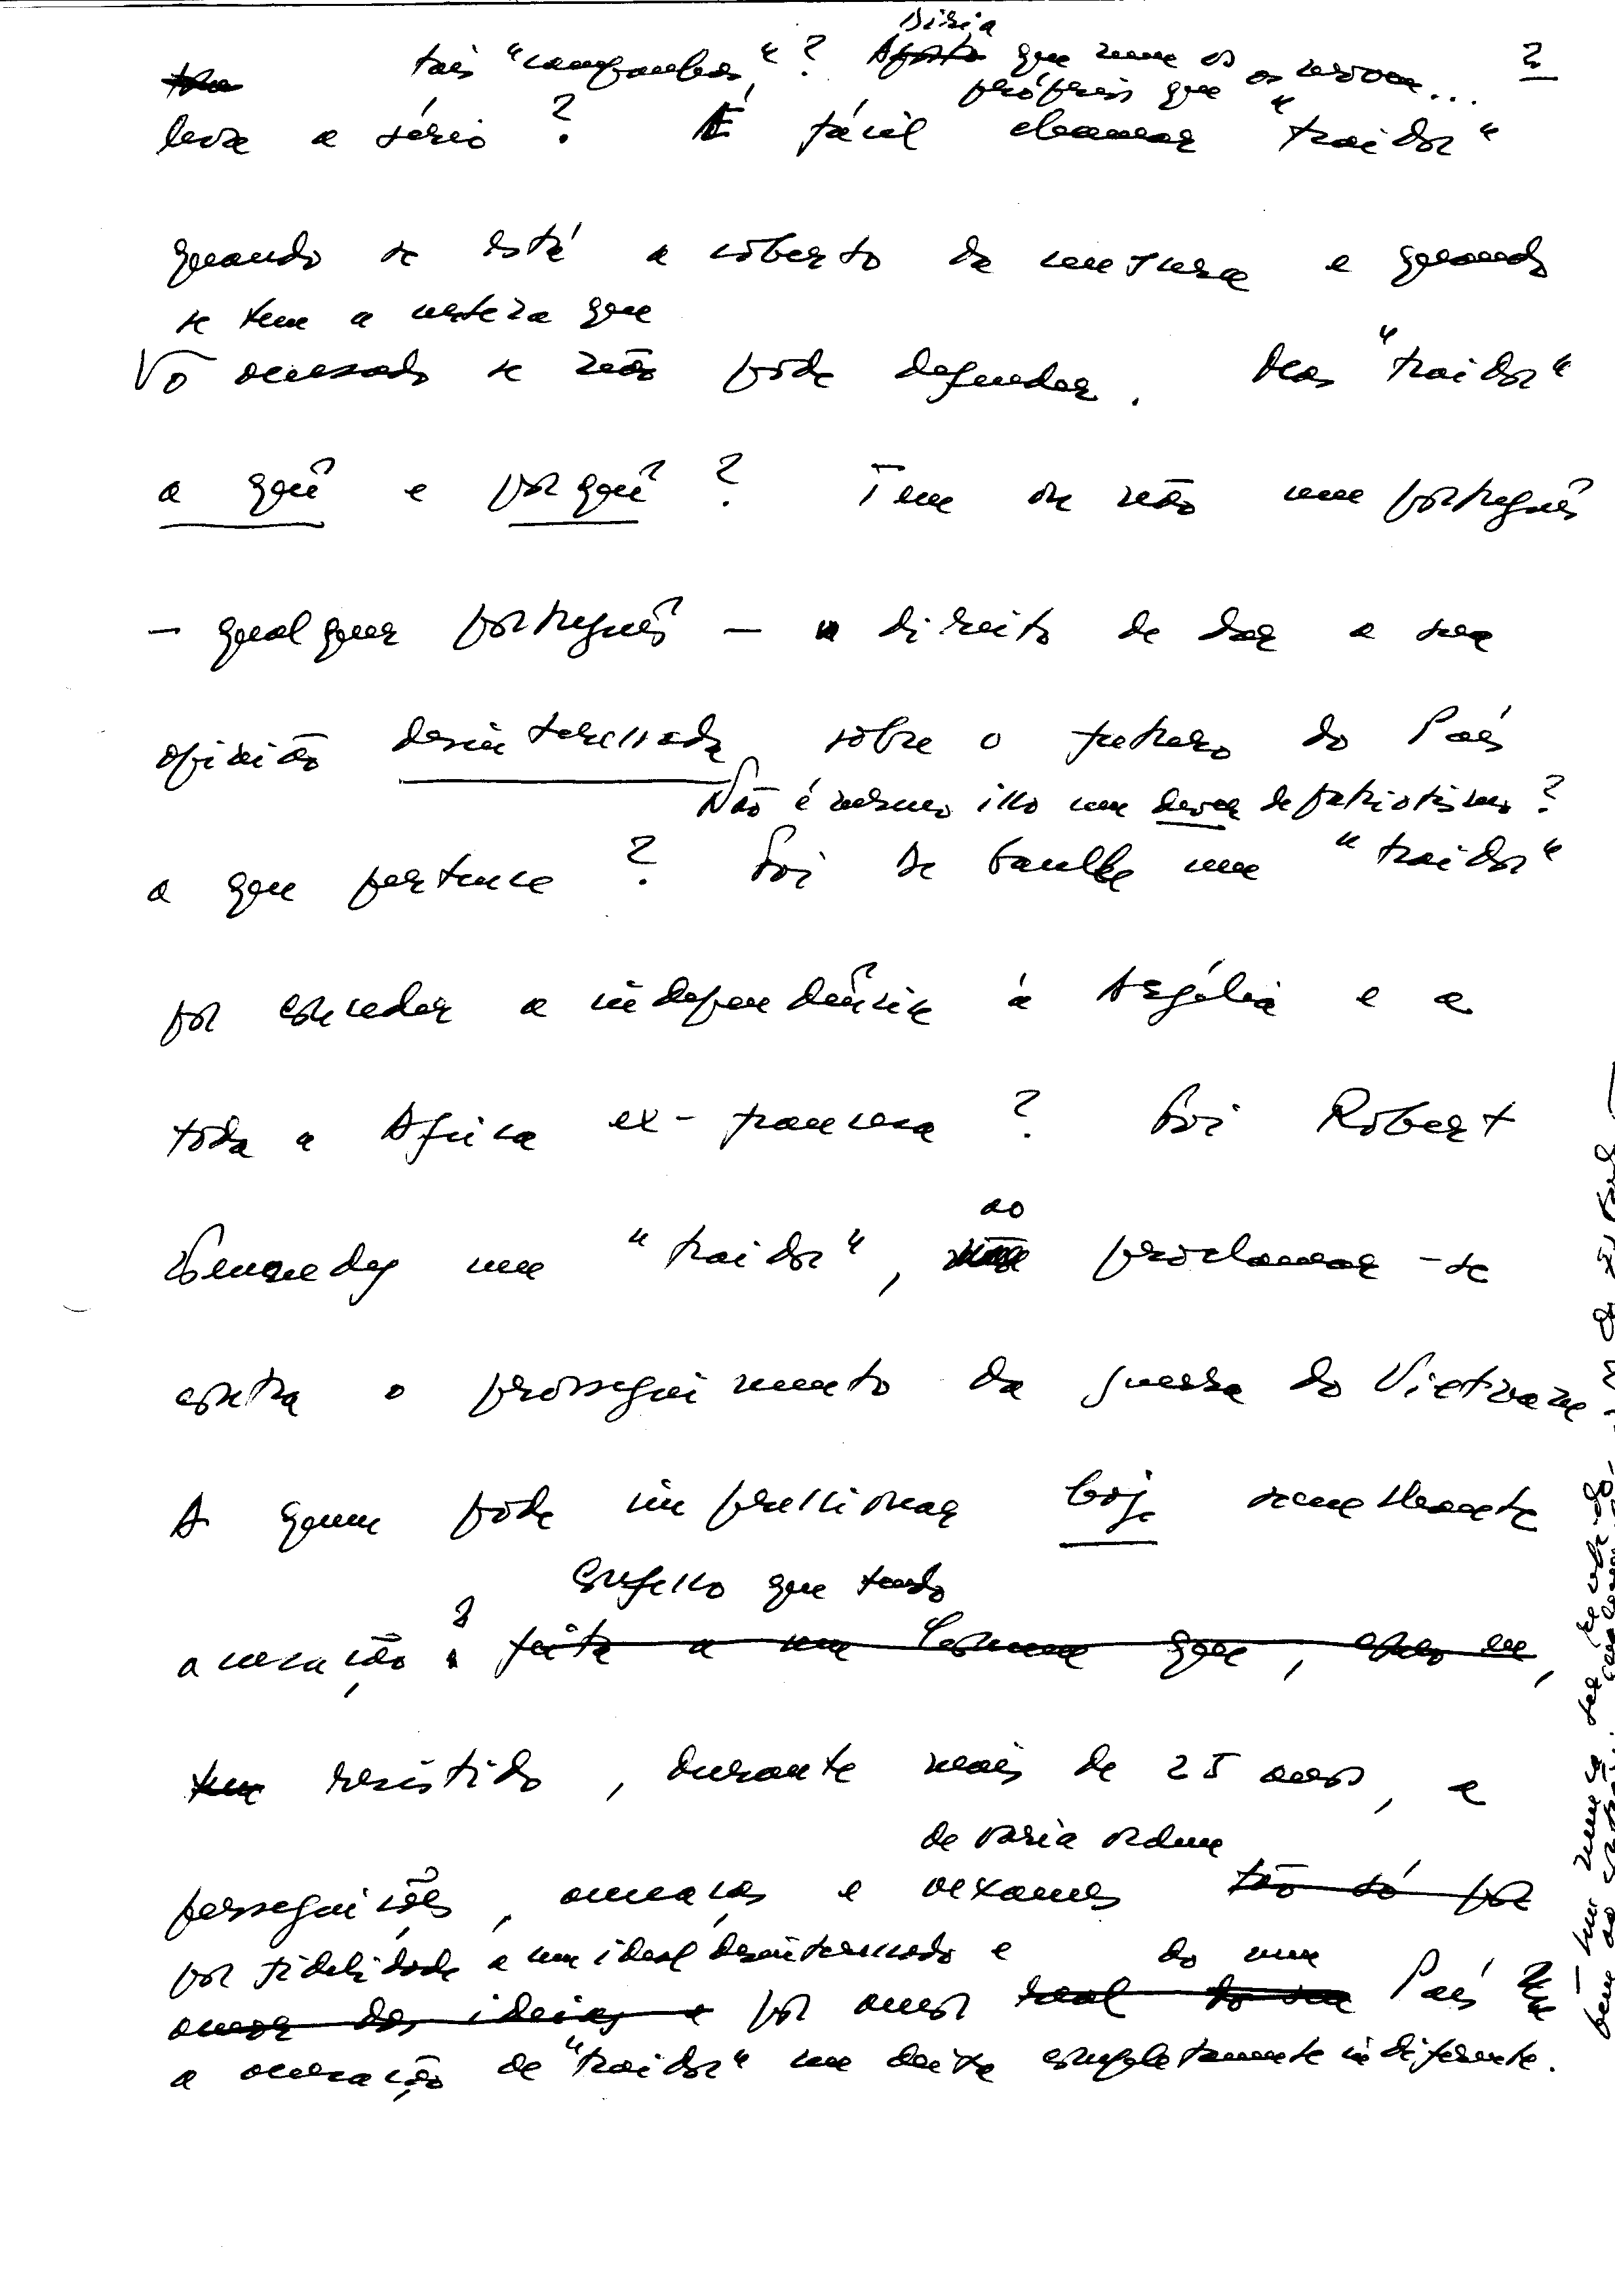 tais "campanhas"? Diria que nem os
próprios que as movem... 2
leva a sério? É fácil chamar "traidor"
quando se está a coberto da censura e quando
se tem a certeza que
o acusado se não pode defender. Mas "traidor"
a quê e porquê? Tem ou não um português
- qualquer português - o direito de dar a sua
opinião desinteressada sobre o futuro do País
Não é mesmo isso um dever de patriotismo?
a que pertence? Foi De Gaulle um "traidor"
por conceder a independência à Argélia e a
toda a Africa ex-francesa? Foi Robert
Kennedy um "traidor", ao proclamar-se
contra o prosseguimento da guerra do Vietname
A quem pode impressionar hoje semelhante
Confesso que tendo
acusação? feita a um homem que,
tem resistido, durante mais de 25 anos, a
de vária ordem
perseguições, ameaças e vexames tão só por
por fidelidade a um ideal desinteressado e do meu
amor das ideias e por amor real do seu País
a acusação de "traidor" me deixa completamente indiferente.